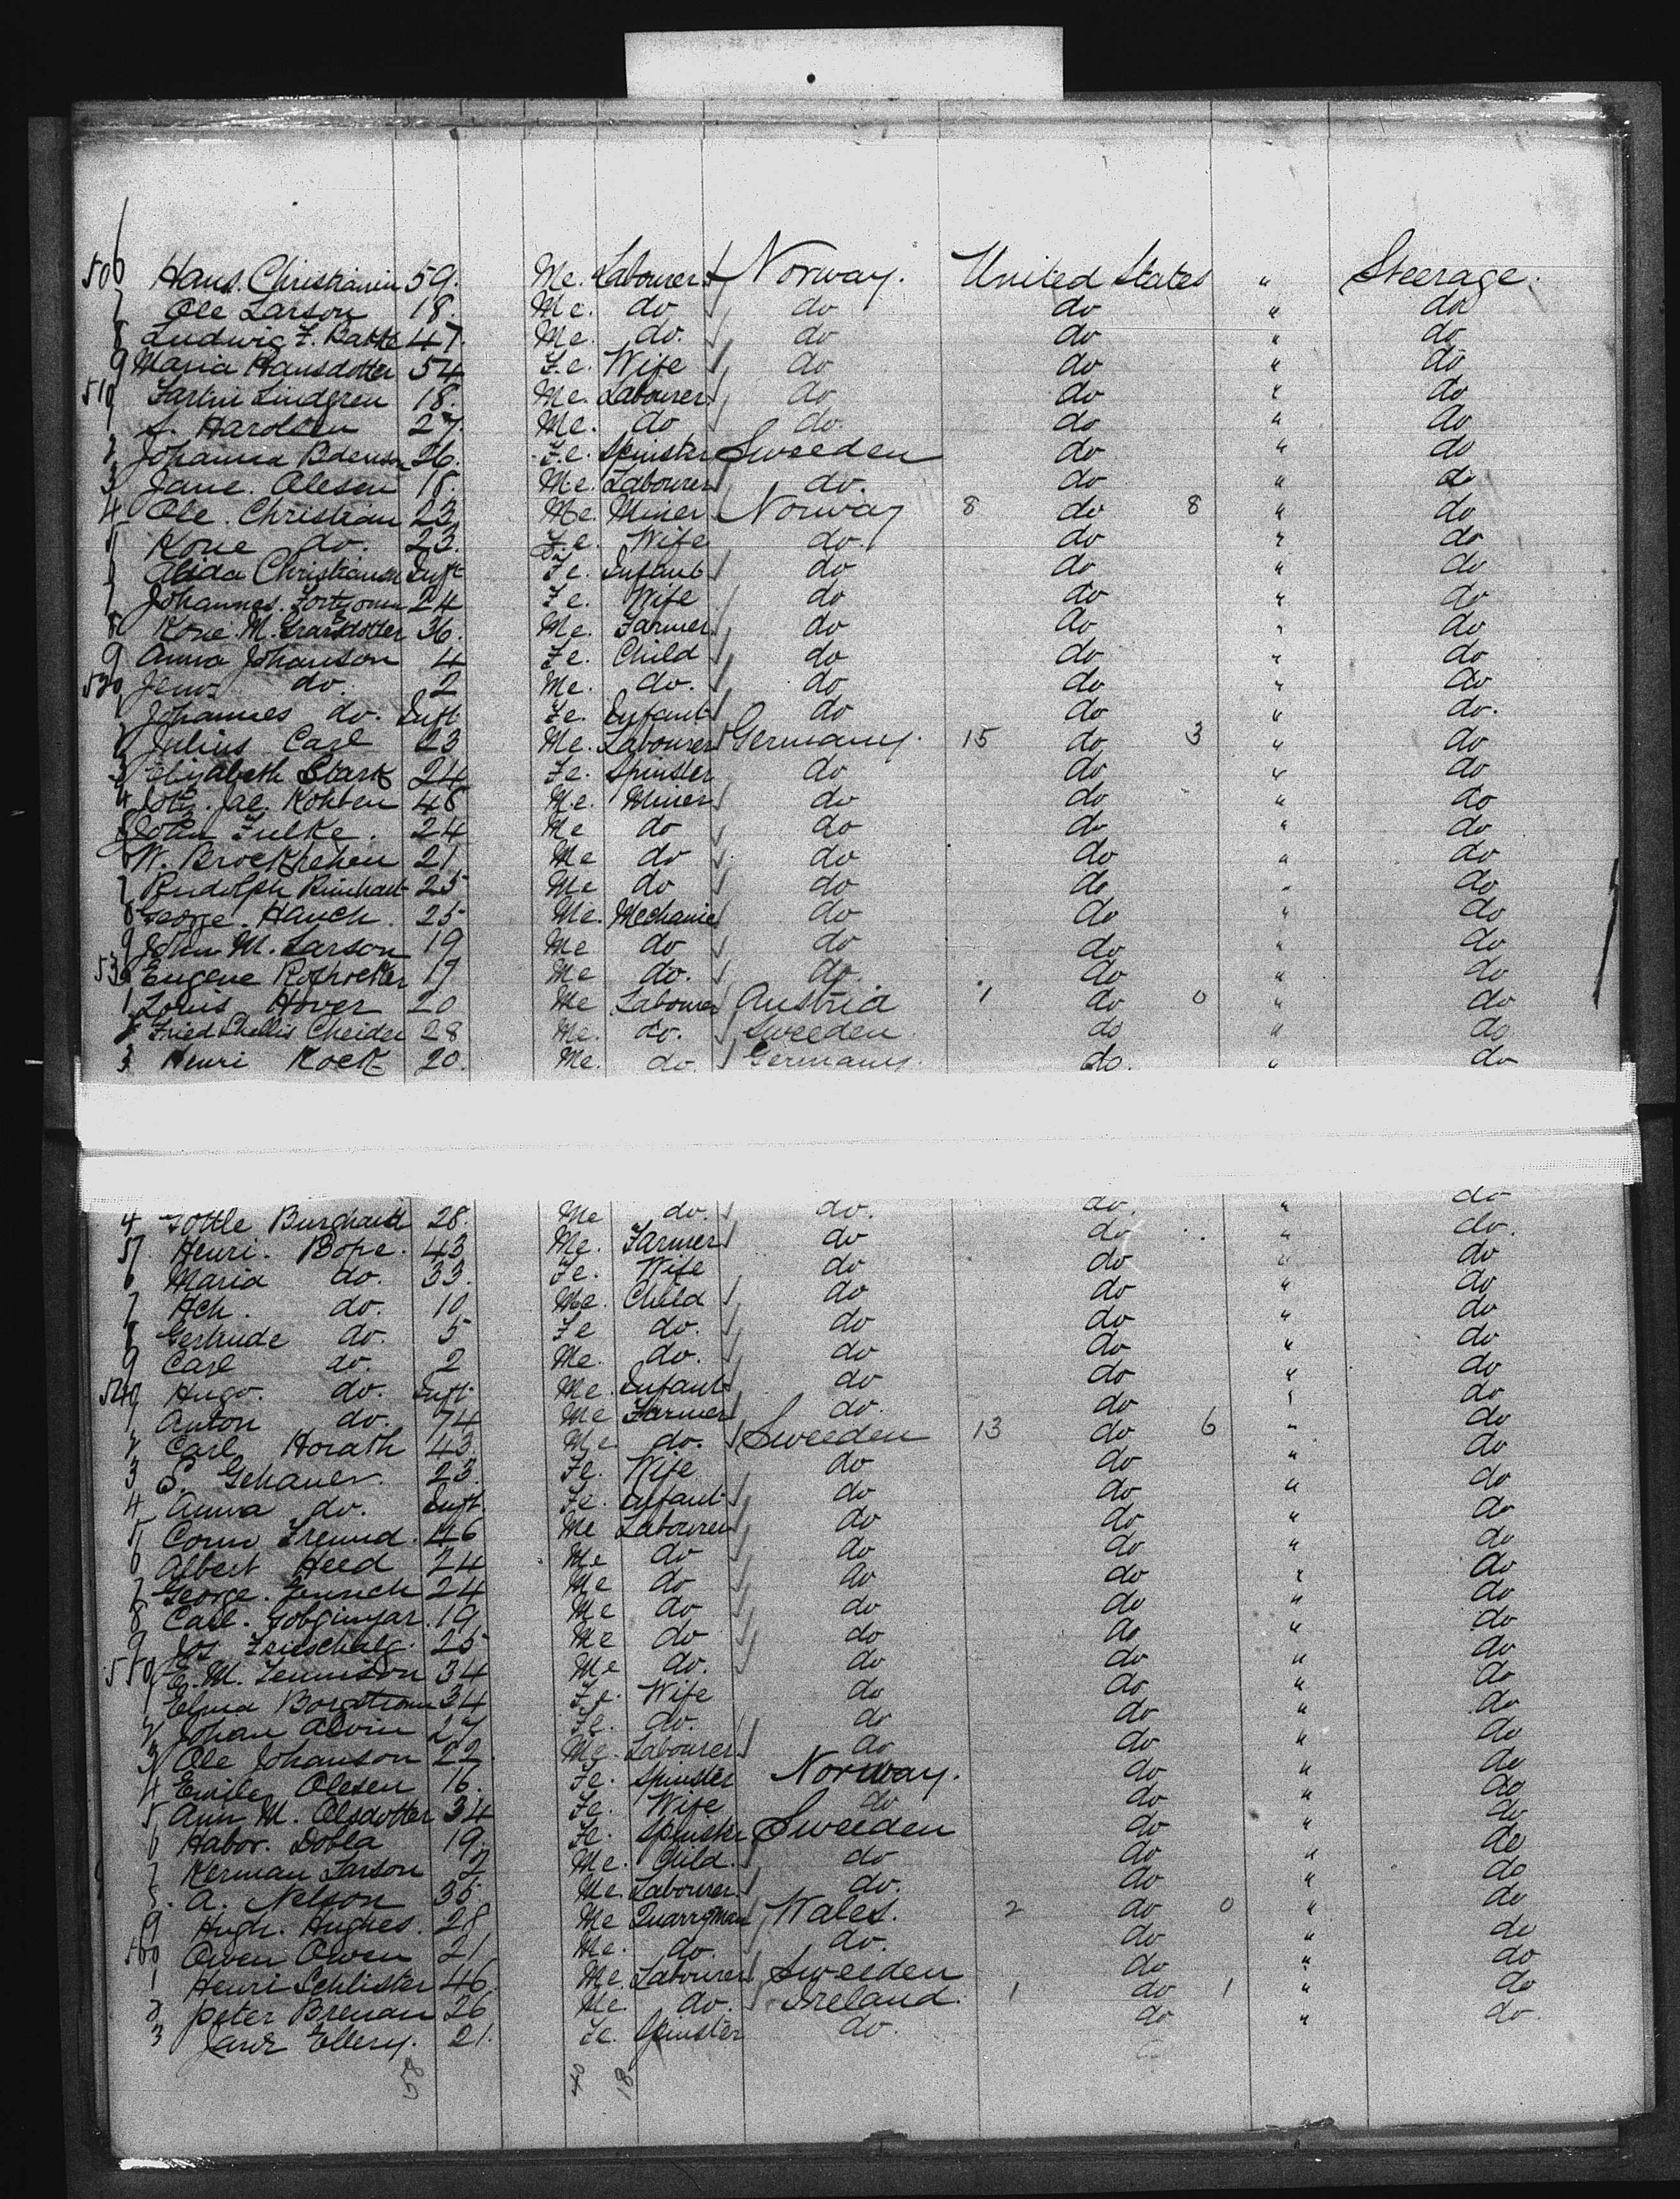 506 Hans Christianin 59. Me. Labourer Norway. United States " Steerage.
7 Ole Larson 18. Me. do do do " do
8 Ludwig F. 47. Me. do. do do " do
9 Maria Hansdotter 54 Fe. Wife do do " do
510 Lindgren 18. Me. Labourer do do " do
1 27. Me. do do. do " do
2 Johanna 26. Fe. Spinster Sweeden do " do
3 Jane. Olesen 18. Me. Labourer do. do " do
4 Ole. Christian 23 Me. Miner Norway 8 do 8 " do
5 do. 23. Fe. Wife do. do " do
6 Christianson Inft Fe. Infant do do " do
7 Johannes. 24 Fe. Wife do do " do
8 M. 36. Me. Farmer do do " do
9 Anna Johanson 4 Fe. Child do do " do
520 Jens do. 2 Me. do. do do " do
1 Johannes do. Inft Fe. Infant do do " do.
2 Julius Carl 23 Me. Labourer Germany. 15 do 3 " do
3 Elizabeth Stark 24 Fe. Spinster do do " do
4 Joh. Jac. Kohben 48 Me. Miner do do " do
5 John Fulke. 24 Me do do do " do
6 W. 21 Me do do do " do
7 Rudolph 25 Me do do do " do
8 George. Hauch. 25 Me. Mechanic do do " do
9 John M. Larson 19 Me do do do " do
530 Eugene 19 Me do. do. do " do
1 Louis Hover 20 Me Labourer Austria 1 do 0 " do
2 Fried Cheider 28 Me. do. Sweeden do " do
3 Henri Kock 20. Me. do. Germany. do. " do
4 Gottle Burghardt 28. Me do. do. do. " do
5 Henri. Bope. 43 Me. Farmer do do " do.
6 Maria do. 33. Fe. Wife do do " do
7 Hch. do. 10 Me. Child do do " do
8 Gertrude do. 5 Fe do. do do " do
9 Carl do. 2 Me. do. do do " do
540 Hugo. do. Inft. Me. Infant do do " do
1 Anton do. 74 Me Farmer do. do " do
2 Carl Horath 43. Me do. Sweeden 13 do 6 " do
3 S. Gehauer. 23. Fe. Wife do do " do
4 Anna do. Inft. Fe. Infant do do " do
5 46 Me Labourer do do " do
6 Albert Heed 24 Me do do do " do
7 George. 24 Me do do do " do
8 Carl. 19 Me do do do " do
9 Jos. 25 Me do do do " do
550 E. M. 34 Me do. do do " do
1 34 Fe. Wife do do " do
2 Johan Alvin 27 Fe. do. do do " do
3 Ole Johanson 22. Me. Labourer do do " do
4 Emile Olesen 16. Fe. Spinster Norway. do " do
5 Ann M. Olsdotter 34 Fe. Wife do do " do
6 Habor. Dobla 19. Fe. Spinster Sweeden do " do
7 Herman Larson 7 Me. Child. do do " do
8. A. Nelson 35. Me. Labourer. do. do " do
9 Hugh. Hughes. 28 Me Quarryman Wales. 2 do 0 " do
560 Owen Owen 21 Me. do. do. do " do
1 Henri Schlister 46. Me. Labourer Sweeden do " do
2 Peter Brenan 26 Me. do. Ireland. 1 do 1 " do
3 Jane Ellery. 21. Fe. Spinster do. do " do.
58 40 18